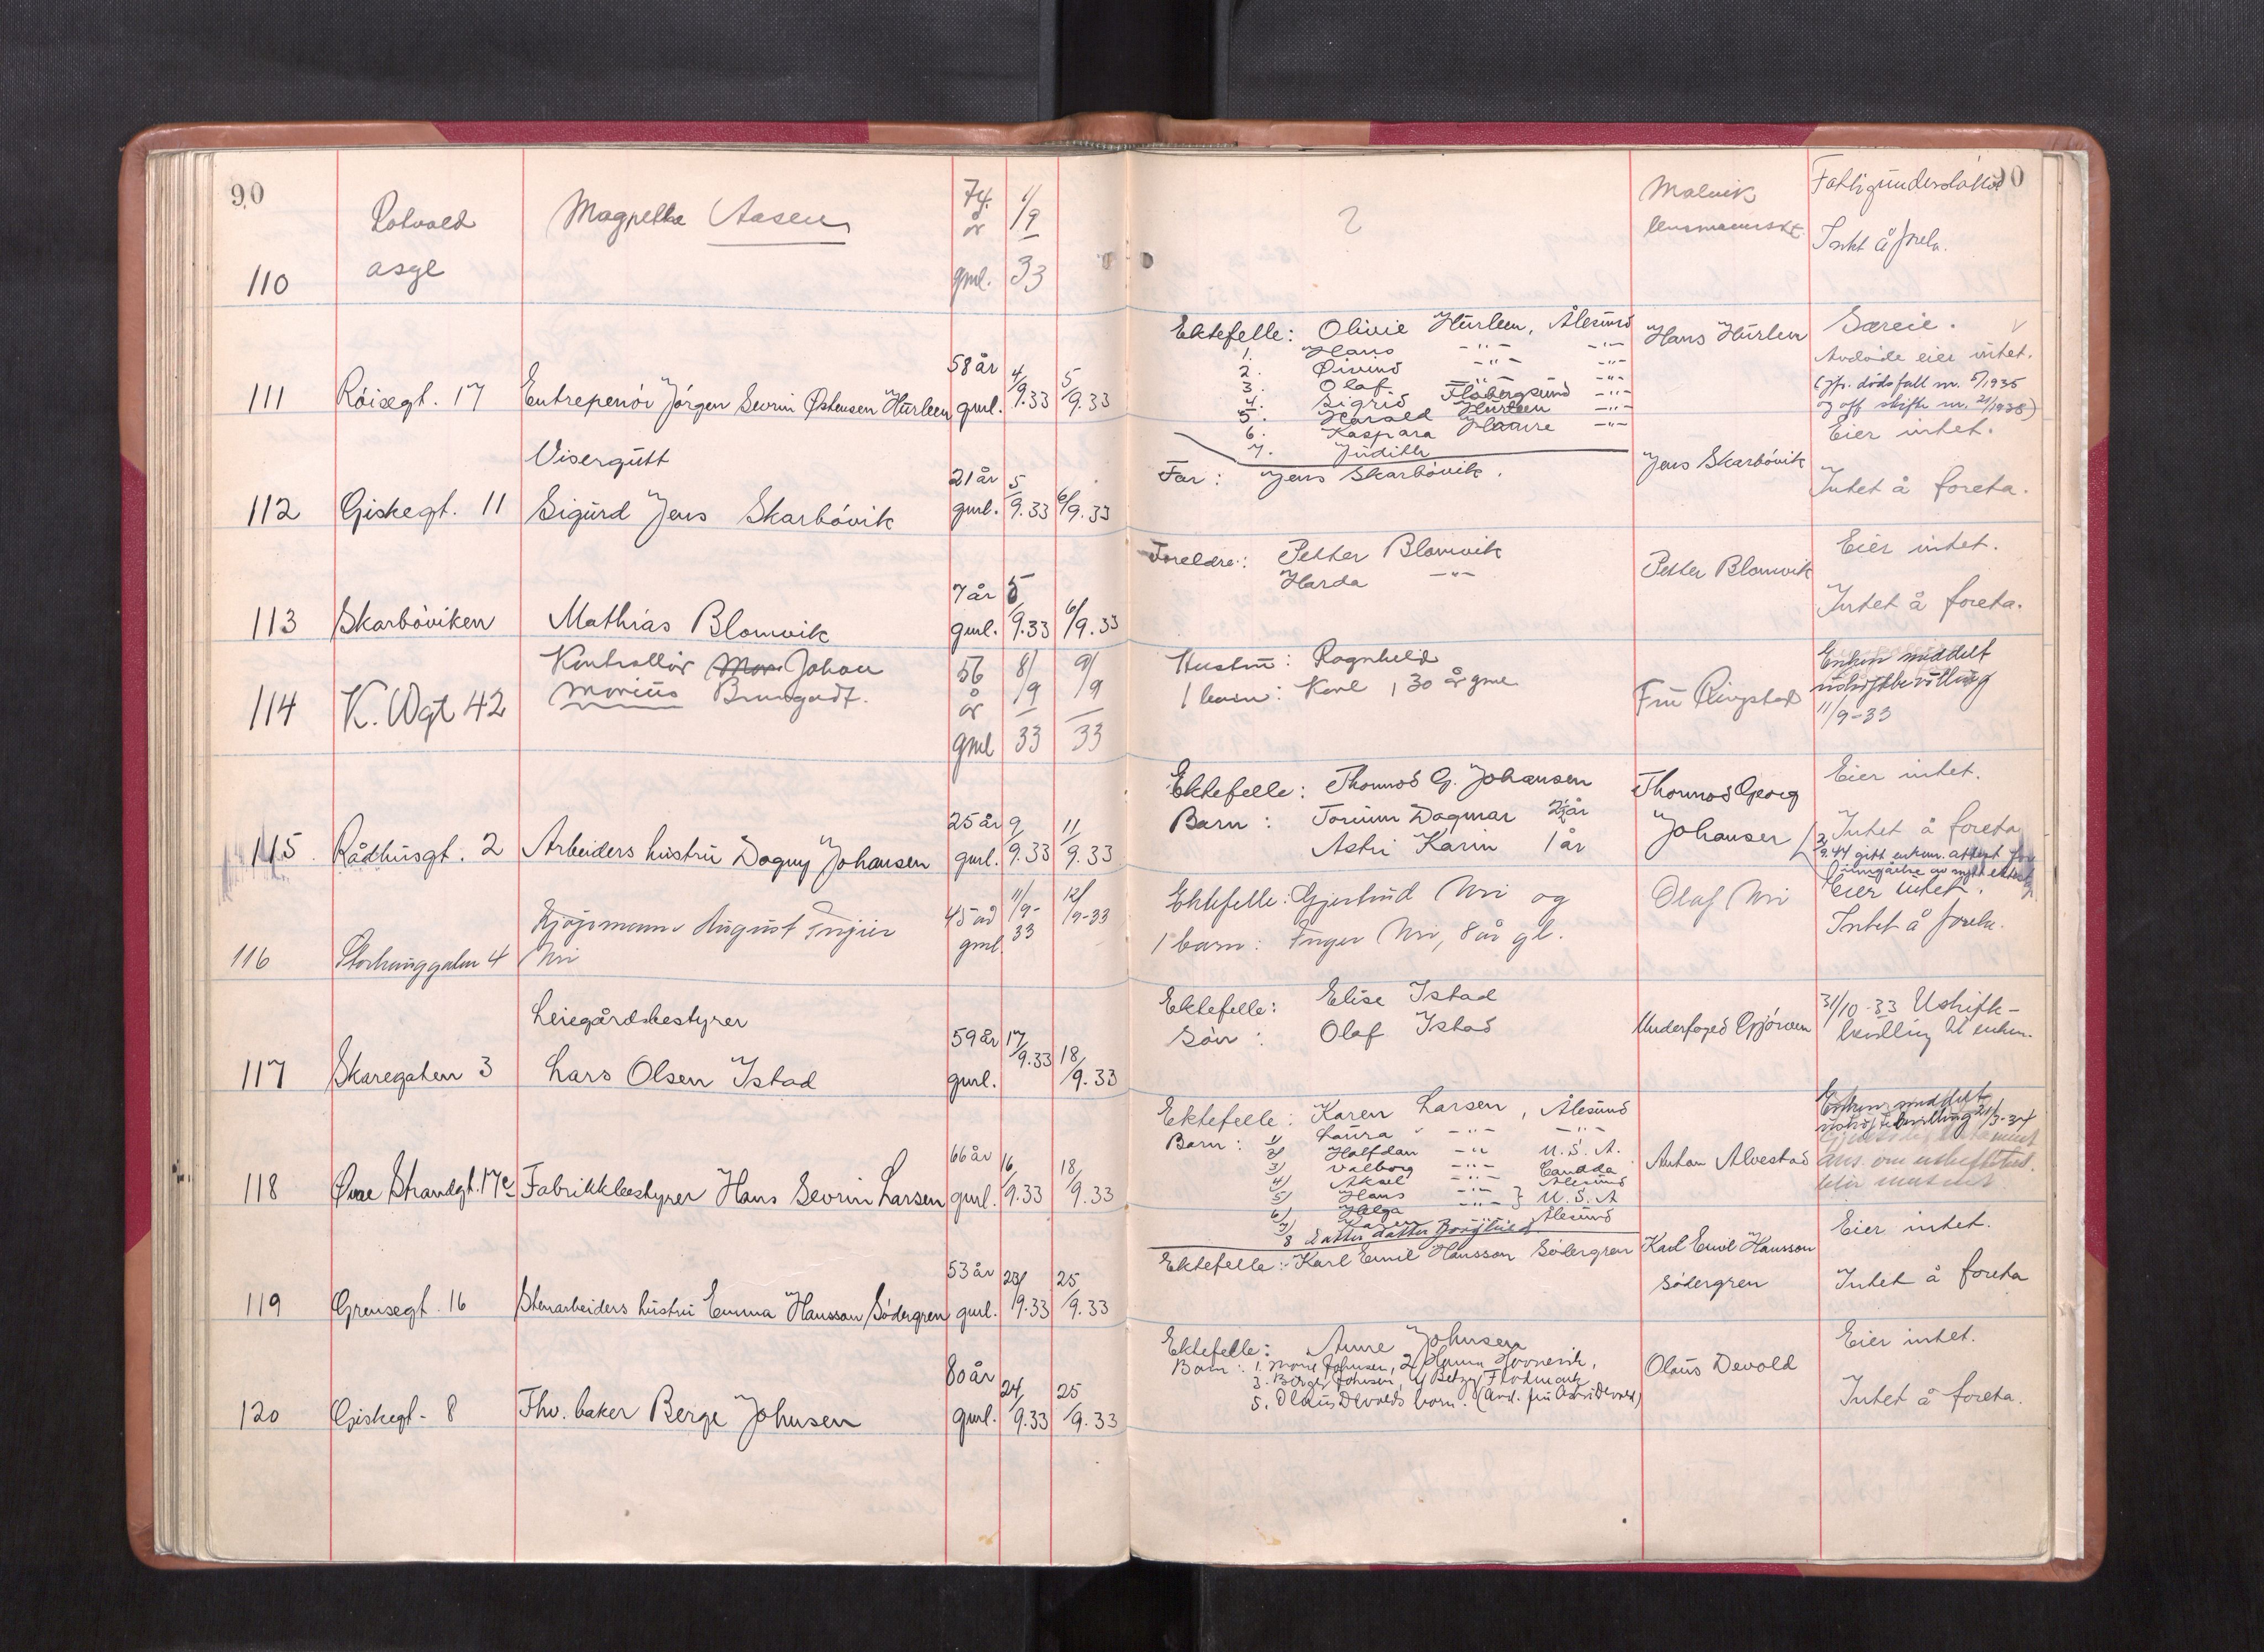 90
110
Rotvold
asyl
Magrethe Aasen
74.
år
gml.
1/9
33
2
Malvik
lensmannskt.
Fattigunderstøttet
Intet å foreta.
90
111
Röisegt. 17
Entrepenör Jörgen Sevrin Østensen Hurlen
58 år
gml.
4/9.33
5/9.33
Ektefelle: Olivie Hurlen, Ålesund
1. Hans -"- -"-
2. Øivind -"- -"-
3. Olaf -"- -"-
4. Sigrid Flobergsund -"-
5. Harald Hurlen -"-
6. Kaspara Haavre -"-
7. Judith
Hans Hurlen
Særeie. v
Avdöde eier intet.
(jfr. dödsfall nr. 5/1935
og off skifte nr. 21/1935)
112
Giskegt. 11
Visergutt
Sigurd Jens Skarbövik
21 år
gml.
5/9.33
6/9.33
Far: Jens Skarbövik.
Jens Skarbövik
Eier intet.
Intet å foreta.
113
Skarböviken
Mathias Blomvik
7 år
gml.
5/9.33
6/9.33
Foreldre: Petter Blomvik
Harda -"-
Petter Blomvik
Eier intet.
Intet å foreta.
114
K. Wgt 42
Kontrollör Johan
Marius
56
år
gml
8/9
33
9/9
33
Hustru: Ragnhild
1 barn: Karl, 30 år gml
Fru Ringstad
Enken meddelt
uskiftebevilling
11/9-33
115.
Rådhusgt. 2
Arbeiders hustru Dagny Johansen
25 år
gml.
9/9.33
11/9.33
Ektefelle: Thomod G. Johansen
Barn: Torunn Dagmar 2½ år
Astri Karin 1 år
Thomod Georg
Johansen
Eier intet.
Intet å foreta
9.44 gitt enkem. attest for
inngåelse av nytt ekteskap
116
Storhauggaten 4
August
Nri
45 år
gml.
11/9-
33
12/9-33
Ektefelle: Gjertrud Nri og
1 barn: Inger Nri, 8 år gl.
Olaf Nri
Eier intet.
Intet å foreta.
117
Skaregaten 3
Leiegårdsbestyrer
Lars Olsen Istad
59 år
gml.
17/9.33
18/9.33
Ektefelle: Elise Istad
Sön: Olaf Istad
Underfoged Gjörven
31/10-33 Uskifte-
bevilling til enken.
118
Øvre Strandgt. 17e
Fabrikkbestyrer Hans Sevrin Larsen
66 år
gml.
16/9.33
18/9.33
Ektefelle: Karen Larsen, Ålesund
Barn: 1) Laura -"- -"-
2) Halfdan -"- U.S.A.
3) Valborg -"- Canada
4) Aksel -"- Ålesund
5) Hans -"- } U.S.A
6) Helga -"-
7) Karen -"- Ålesund
8 Datter datter Borghild
Anton Alvestad
Enken meddelt
uskiftebevilling 21/3-34
119
Grensegt. 16
Stenarbeiders hustru Emma Hansson Södergren
53 år
gml.
23/9.33
25/9.33
Ektefelle: Karl Emil Hansson Södergren
Karl Emil Hansson
Södergren
Eier intet.
Intet å foreta
120
Giskegt. 8
Fhv. baker Berge Johnsen
80 år
gml.
24/9.33
25/9.33
Ektefelle: Anne Johnsen
Barn: 1. Johnsen, 2 Hanna
3. Berge Johnsen, 4 Betzy Flodmark
5. Olaus Devolds barn. (Avd. fru Astri Devold)
Olaus Devold
Eier intet.
Intet å foreta.